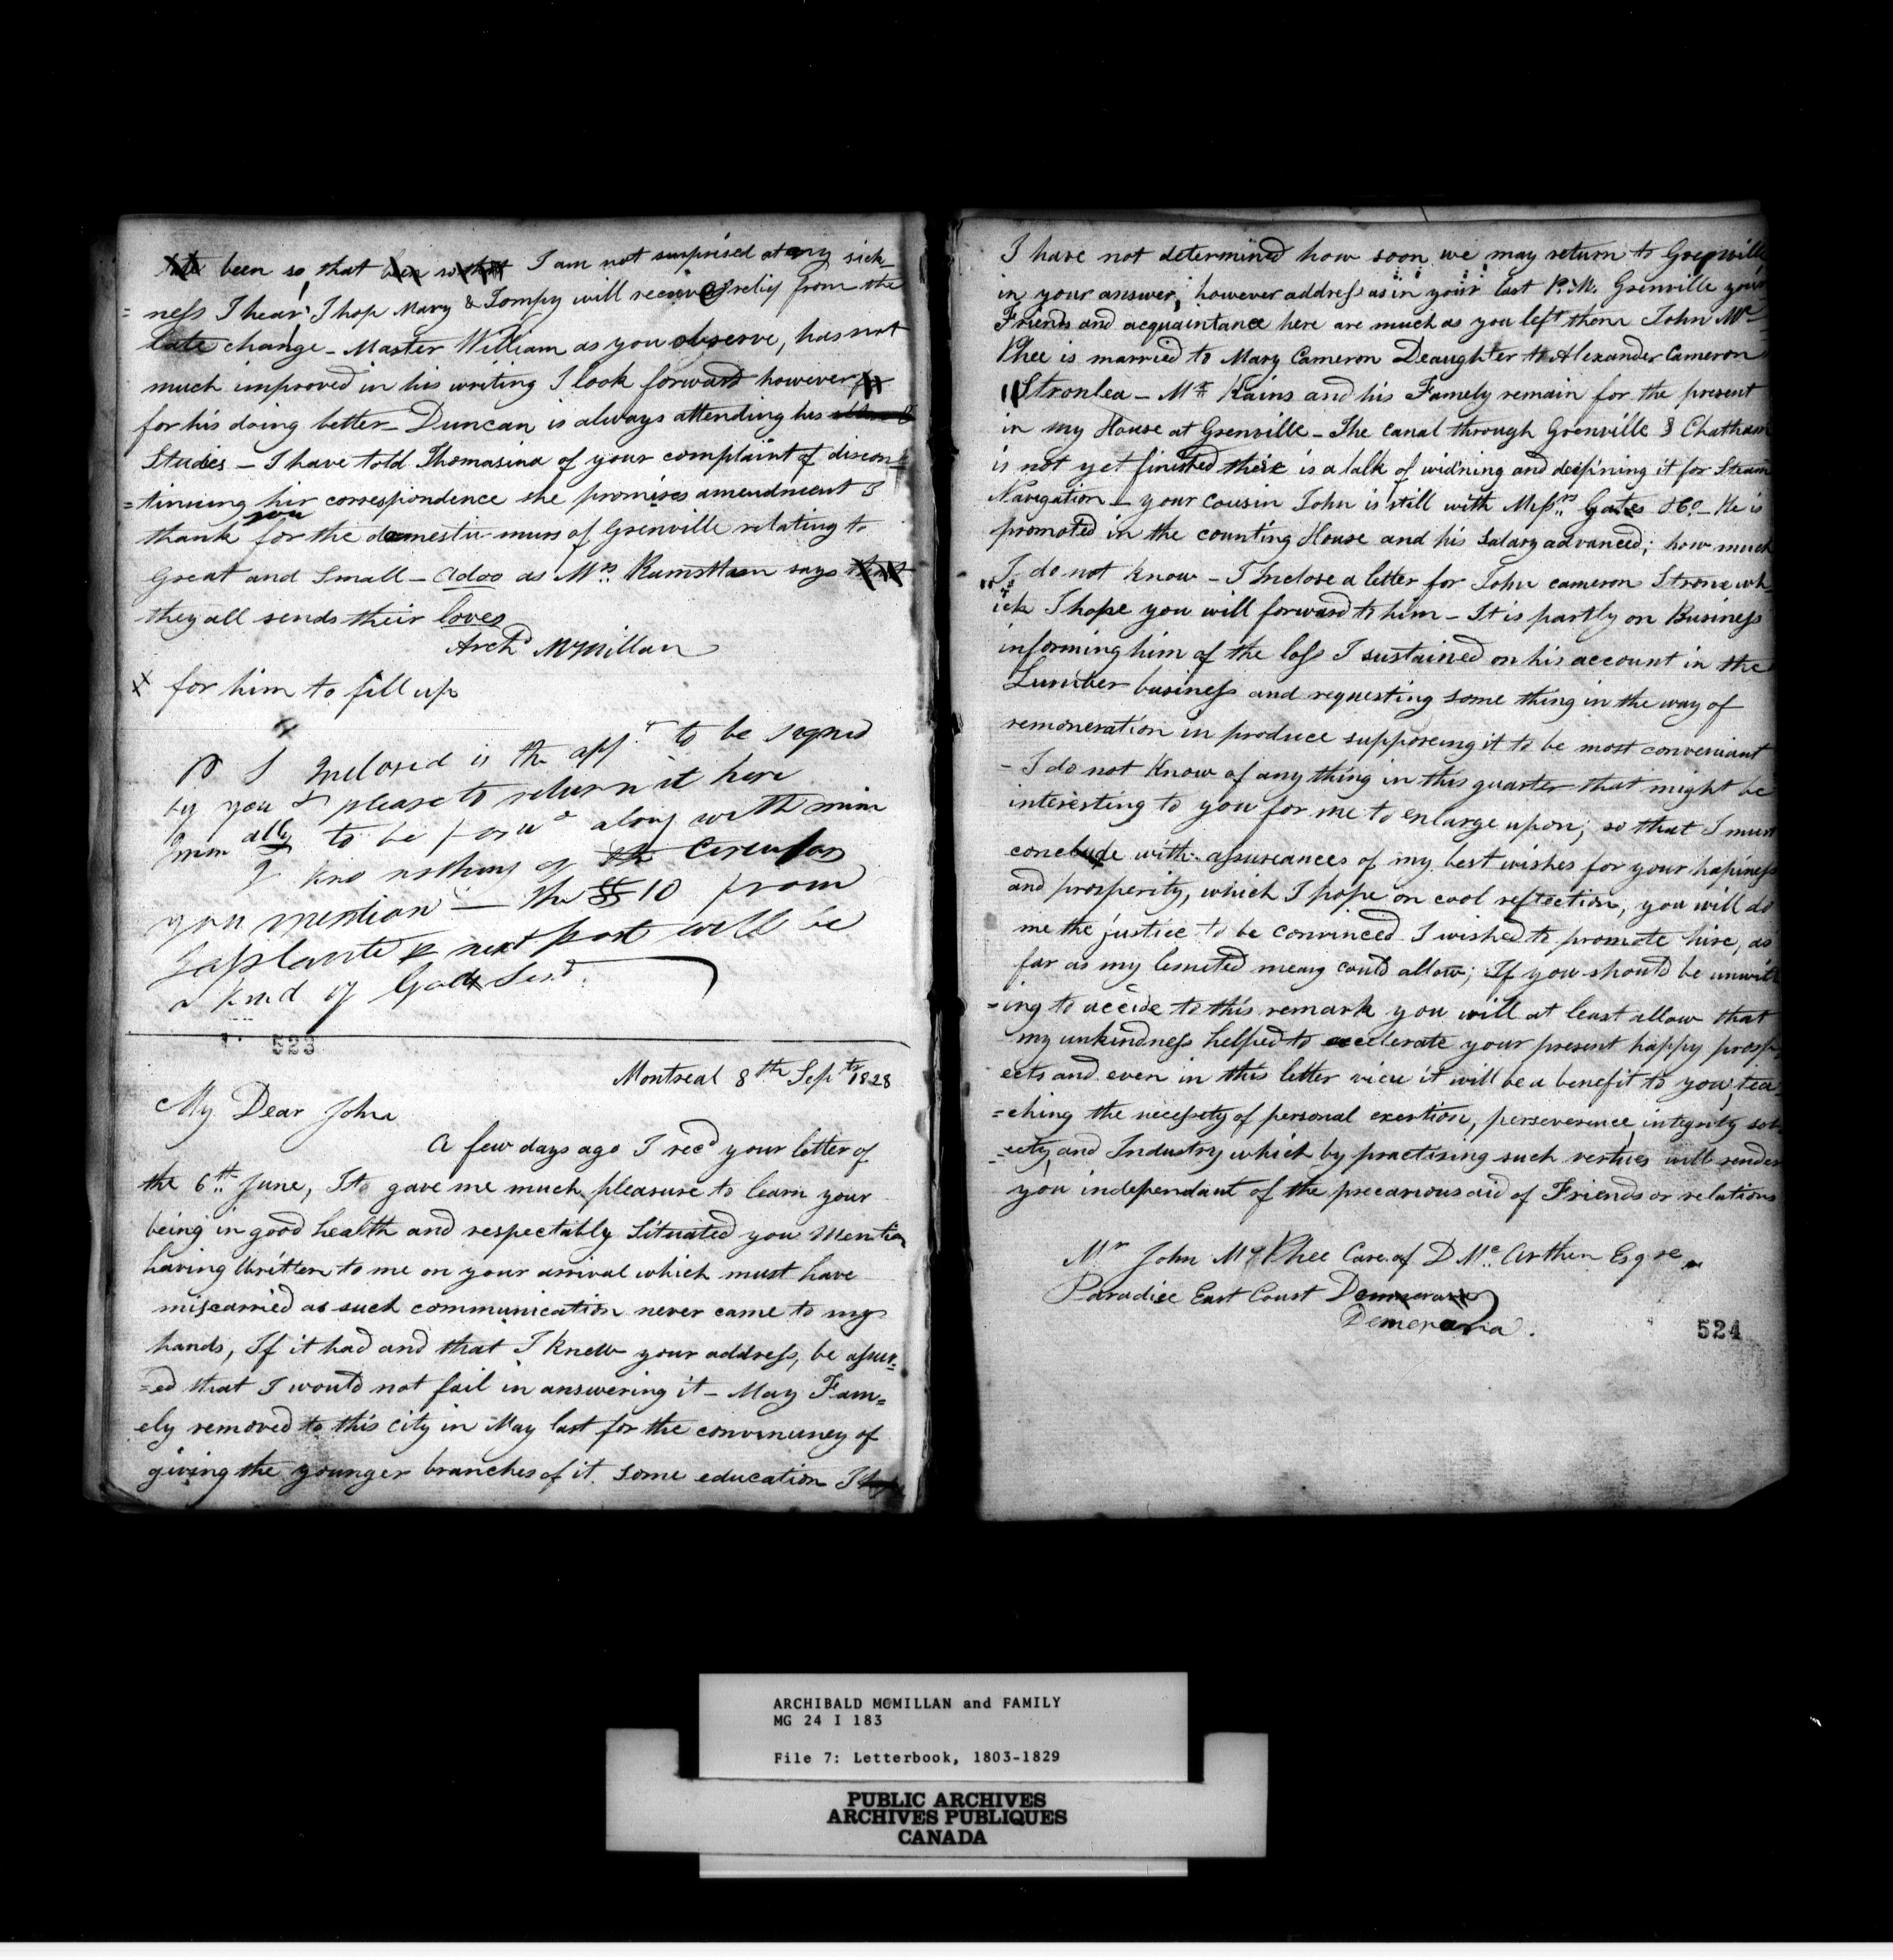 been so that I am not surprised at any sick
= ness I hear I hop Mary & Tompy will receive relief from the
late change - Master William as you observe, has not
much improved in his writing I look forward however
for his doing better - Duncan is always attending his
Studies - I have told Thomasina of your complaint of discon=
=tinuing hir correspondence she promises amendment I
you
thank for the domestic of Grenville relating to
Great and Small - adoo as Mrs. says
they all sends their loves
Archd McMillan
X for him to fill up
P S Inclosed is the to be signed
by you & please to return it here
to be along with mine
I kno nothing of the Circular
you mention - The $10 from
Laplante next post will be
a kind of God Send.
523
Montreal 8th Sepr 1828
My Dear John
A few days ago I recd your letter of
the 6th June, It gave me much pleasure to learn your
being in good health and respectably Situated you Mention
having Written to me on your arrival which must have
miscarried as such communication never came to my
hands, If it had and that I knew your address, be assur=
=ed that I would not fail in answering it - May Fam=
ely removed to this city in May last for the of
giving the younger branches of it some education I
I have not determined how soon we may return to Grenville
in your answer, however address as in your last P.M. Grenville your
Friends and acquaintance here are much as you left them John Mc
Phee is married to Mary Cameron Deaughter to Alexander Cameron
Stronlea - Mr Kains and his Famely remain for the present
in my House at Grenville - The canal through Grenville & Chatham
is not yet finished there is a talk of wid'ning and it for Steam
Navigation - your Cousin John is still with Messrs. Gates & Co - He is
promoted in the counting House and his Salary advanced; how much
I do not know - I Inclose a letter for John Cameron Strone wh
ich I hope you will forward to him - It is partly on Business
informing him of the loss I sustained on his account in the
Lumber business and requesting some thing in the way of
remoneration in produce supposeing it to be most conveniant
- I do not Know of any thing in this quarter that might be
interesting to you for me to enlarge upon; so that I must
conclude with assureances of my best wishes for your hapiness
and prosperity, which I hope on cool reflection, you will do
me the justice to be convinced I wished to promote hire, as
far as my lemeted means could allow; If you should be unwil
=ing to accide to this remark you will at least allow that
my unkindness helped to accelerate your present happy prosp
ects and even in this letter view it will be a benefit to you, tea
=ching the necessity of personal exertion, perseverence, integrity sob
=iety, and Industry which by practising such vertues will render
you independant of the precarious aid of Friends or relations
Mr John McPhee Care of D Mc. Arthur Esqre
Paradise East Coast
Demeraria.
524
ARCHIBALD MCMILLAN and FAMILY
MG 24 I 183
File 7: Letterbook, 1803-1829
PUBLIC ARCHIVES
ARCHIVES PUBLIQUES
CANADA